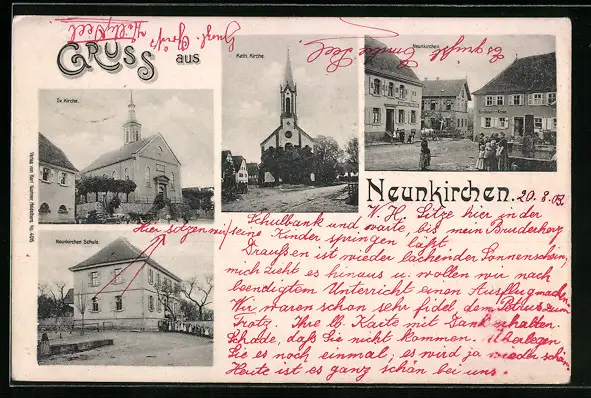 GRUSS aus
Kath. Kirche.
Neunkirchen
Ev. Kirche.
Neunkirchen. 20.8.07.
Neunkirchen Schule.
Hier sitzen wir
W. H. Sitze hier in der
Schulbank und warte, bis mein Bruderherz
seine Kinder springen läßt.
Draußen ist wieder lachender Sonnenschein,
mich zieht es hinaus u. wollen wir nach
beendigtem Unterricht einen Ausflug machen.
Wir waren schon sehr fidel dem Petrus zum
Trotz. Ihre lb. Karte mit Dank erhalten.
Schade, daß Sie nicht kommen. Überlegen
Sie es noch einmal, es wird ja wieder schön.
Heute ist es ganz schön bei uns.
Es grüßt